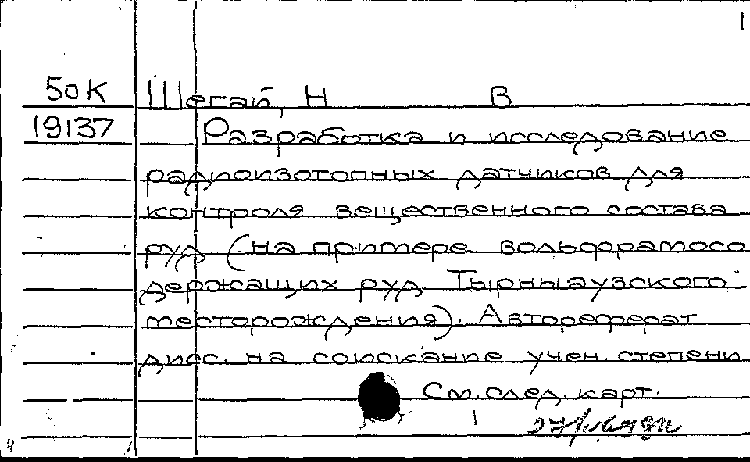 1
50К Шегай, Н В
19137 Разработка и исследование
радиоизотопных датчиков для
контроля вещественного состава
руд (на примере вольфрамосо
держащих руд Тырныаузского
месторождения). Автореферат
дисс. на соискание учен. степени
См. след. карт.